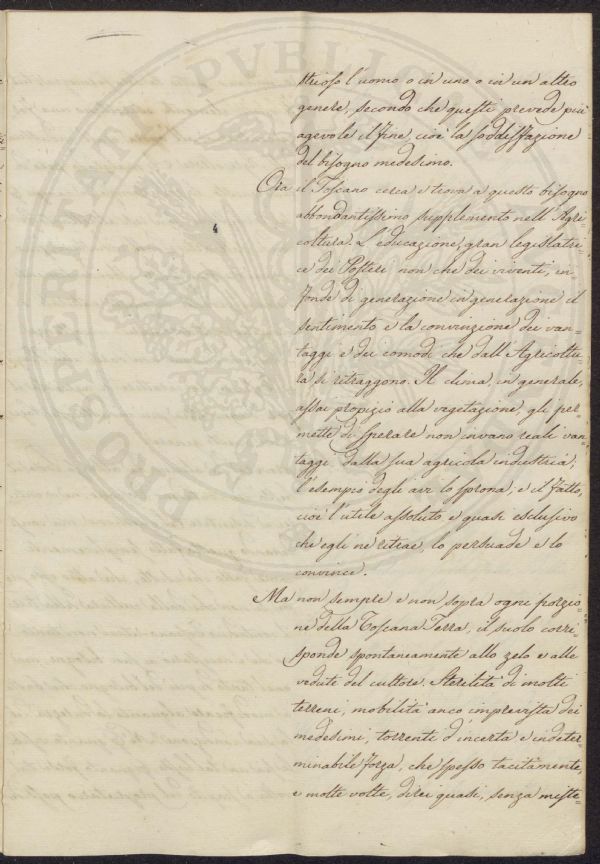 strioso l'uomo o in uno o in un altro
genere, secondo che questi prevede più
agevole il fine, cioè la soddisfazione
del bisogno medesimo.
Ora il Toscano cerca e trova a questo bisogno
abbondantissimo supplemento nell'Agri=
coltura. L'educazione, gran legislatri=
ce dei Posteri non che dei viventi, in=
fonde di generazione in generazione il
sentimento e la convinzione dei van=
taggi e dei comodi che dall'Agricoltu=
ra si ritraggono. Il clima, in generale,
assai propizio alla vegetazione, gli per=
mette di sperare non invano reali van=
taggi dalla sua agricola industria;
l'esempio degli avi lo sprona; e il fatto,
cioè l'utile assoluto e quasi esclusivo
che egli ne ritrae, lo persuade e lo
convince.
Ma non sempre e non sopra ogni porzio=
ne della Toscana Terra, il suolo corri=
sponde spontaneamente allo zelo e alle
vedute del cultore. Sterilità di molti
terreni, mobilità anco imprevista dei
medesimi, torrenti d'incerta e indeter=
minabile forza, che spesso tacitamente,
e molte volte, direi quasi, senza miste=
4
PUBLICAE
PROSPERITATI